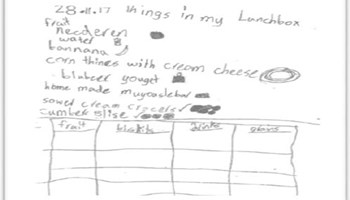 28.11.17 things in my Lunchbox
fruit
necderen
water 8
bannana
corn thines with cream cheese
blubeer yougot
home made muycoslebar
sowed cream craceler
cumbek slise
fruit biskits drinks grains